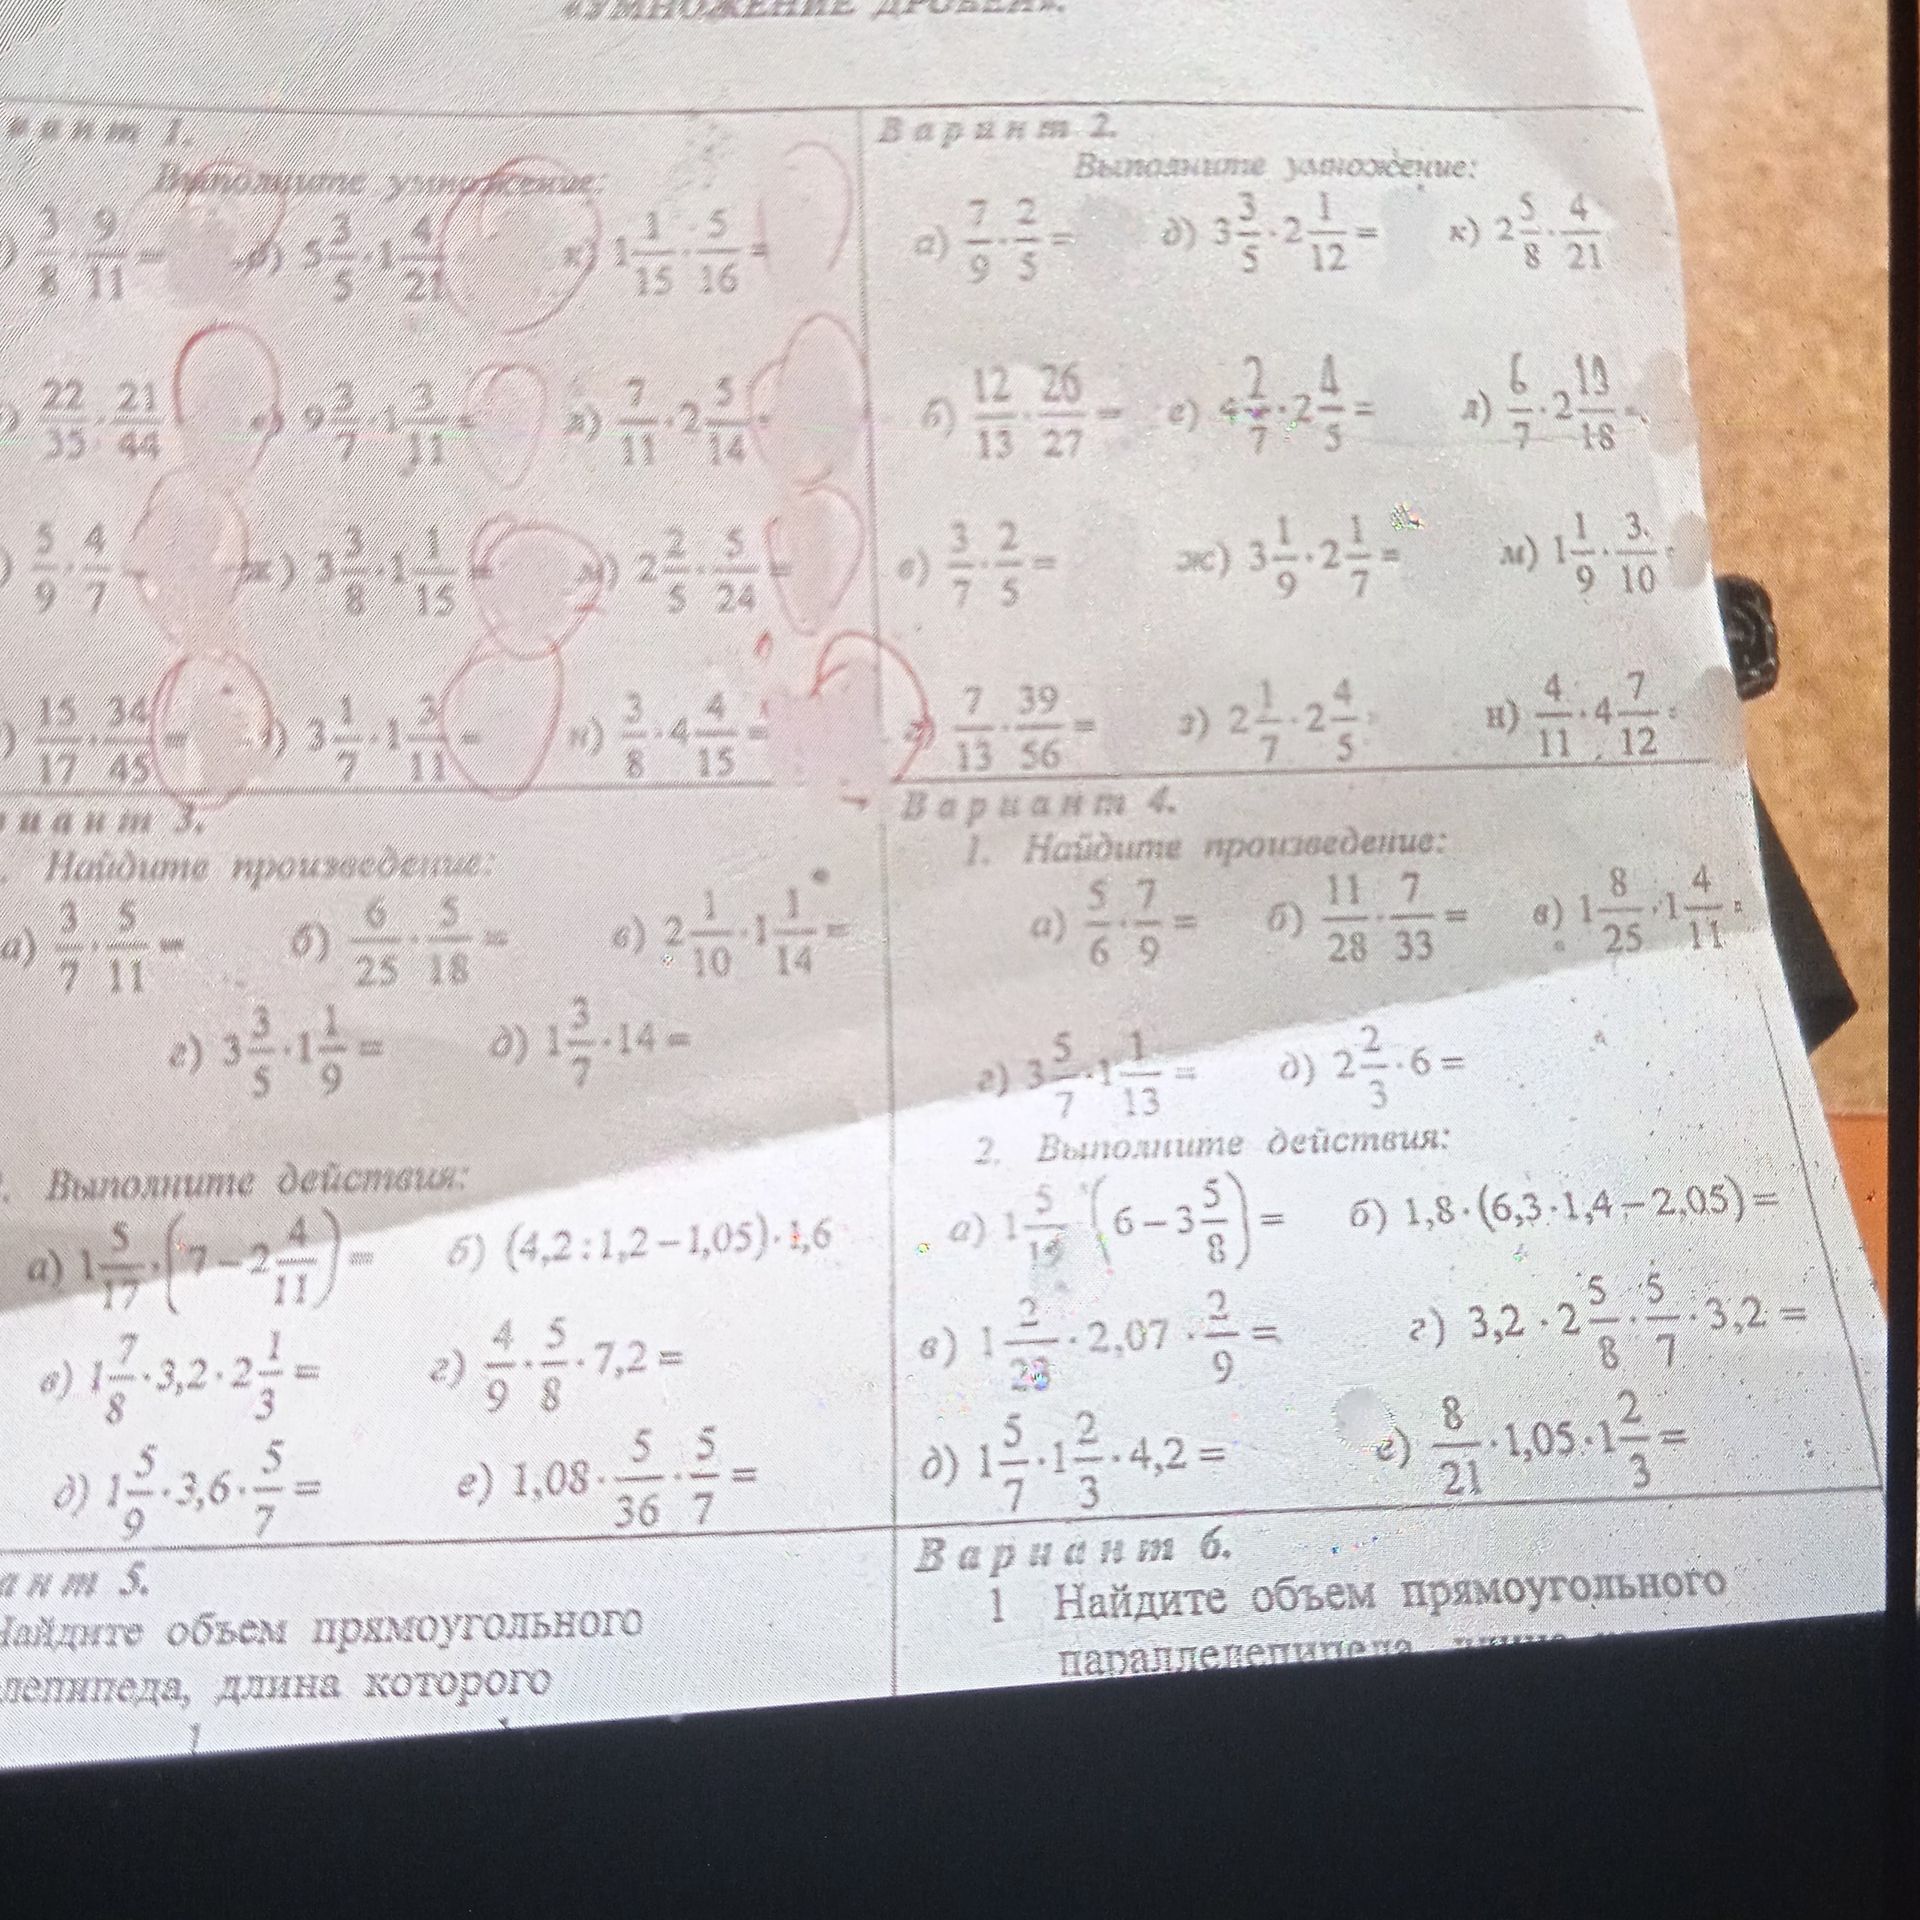 «УМНОЖЕНИЕ ДРОБЕЙ».
ант 1.
Выполните умножение:
3/8 · 9/11 = д) 5 3/5 · 1 4/21 к) 1 1/15 · 5/16 =
22/35 · 21/44 е) 9 3/7 · 1 3/11 = л) 7/11 · 2 5/14
) 5/9 · 4/7 ж) 3 3/8 · 1 1/15 = м) 2 2/5 · 5/24 =
) 15/17 · 34/45 = ) 3 1/7 · 1 3/11 = н) 3/8 · 4 4/15 =
Варинт 2.
Выполните умножение:
а) 7/9 · 2/5 = д) 3 3/5 · 2 1/12 = к) 2 5/8 · 4/21
б) 12/13 · 26/27 = е) 4 2/7 · 2 4/5 = л) 6/7 · 2 /18
в) 3/7 · 2/5 = ж) 3 1/9 · 2 1/7 = м) 1 1/9 · 3/10
7/13 · 39/56 = з) 2 1/7 · 2 4/5 н) 4/11 · 4 7/12
иант 3.
Найдите произведение:
а) 3/7 · 5/11 = б) 6/25 · 5/18 = в) 2 1/10 · 1 1/14 =
г) 3 3/5 · 1 1/9 = д) 1 3/7 · 14 =
Выполните действия:
а) 1 5/17 · (7 – 2 4/11) = б) (4,2 : 1,2 – 1,05) · 1,6
в) 1 7/8 · 3,2 · 2 1/3 = г) 4/9 · 5/8 · 7,2 =
д) 1 5/9 · 3,6 · 5/7 = е) 1,08 · 5/36 · 5/7 =
Вариант 4.
1. Найдите произведение:
а) 5/6 · 7/9 = б) 11/28 · 7/33 = в) 1 8/25 · 1 4/11
г) 3 5/7 · 1 1/13 = д) 2 2/3 · 6 =
2. Выполните действия:
а) 1 5/19 (6 – 3 5/8) = б) 1,8 · (6,3 · 1,4 – 2,05) =
в) 1 2/23 · 2,07 · 2/9 = г) 3,2 · 2 5/8 · 5/7 · 3,2 =
д) 1 5/7 · 1 2/3 · 4,2 = е) 8/21 · 1,05 · 1 2/3 =
ант 5.
Найдите объем прямоугольного
лепипеда, длина которого
Вариант 6.
1 Найдите объем прямоугольного
параллелепипеда